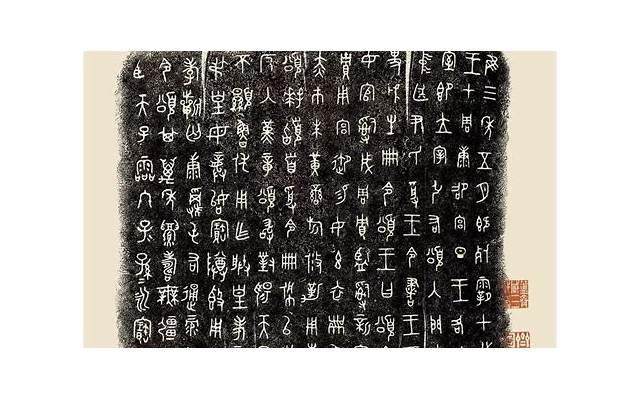 隹三年五月既死霸甲
王才周康卲宮旦王各
室即立宰弘右頌入門
廷尹氏受王令書王
史虢生冊令頌王曰頌
官𤔲成周貯監𤔲新
貯用宮御易女玄衣黹
赤巿朱黃䜌旂攸勒用
頌拜𩒨首受令冊佩以
反入堇章頌敢對揚天
不顯魯休用乍朕皇考
皇母龏始寶尊鼎用
孝匄康虔屯右通彔
令頌其萬年眉壽無疆
臣天子霝冬子孫永寶